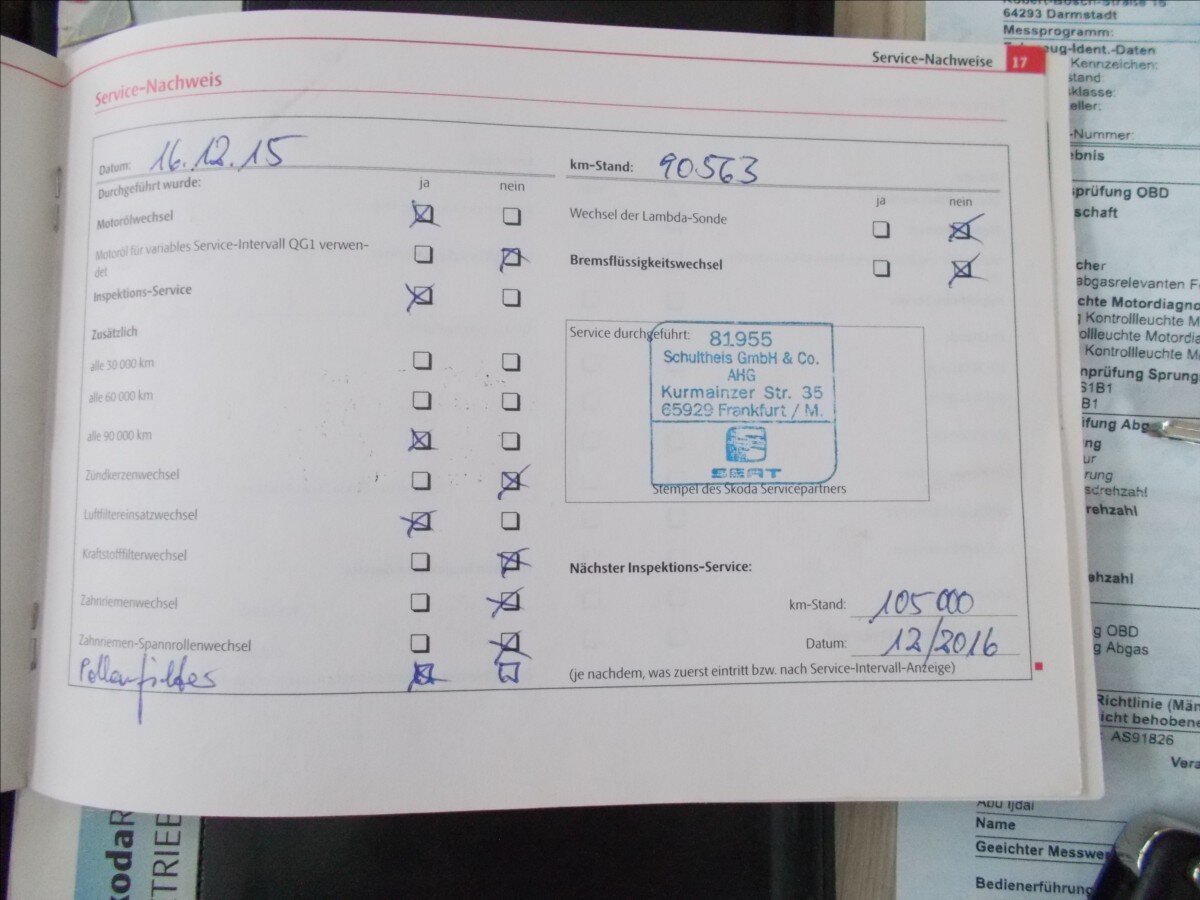 Service-Nachweise 17
Service-Nachweis
Datum: 16.12.15
Durchgeführt wurde: ja nein
Motorölwechsel
Motoröl für variables Service-Intervall QG1 verwen-
det
Inspektions-Service
Zusätzlich
alle 30 000 km
alle 60 000 km
alle 90 000 km
Zündkerzenwechsel
Luftfiltereinsatzwechsel
Kraftstofffilterwechsel
Zahnriemenwechsel
Zahnriemen-Spannrollenwechsel
Pollenfilter
km-Stand: 90563
ja nein
Wechsel der Lambda-Sonde
Bremsflüssigkeitswechsel
Service durchgeführt:
81955
Schultheis GmbH & Co.
AHG
Kurmainzer Str. 35
65929 Frankfurt / M.
SEAT
Stempel des Skoda Servicepartners
Nächster Inspektions-Service:
km-Stand: 105000
Datum: 12/2016
(je nachdem, was zuerst eintritt bzw. nach Service-Intervall-Anzeige)
Robert-Bosch-Straße
64293 Darmstadt
Messprogramm:
zeug-Ident.-Daten
Kennzeichen:
stand:
sklasse:
eller:
-Nummer:
ebnis
sprüfung OBD
schaft
cher
abgasrelevanten F
chte Motordiagno
g Kontrollleuchte M
ollleuchte Motordia
Kontrollleuchte M
nprüfung Sprung
S1B1
B1
üfung Abg
ng
ur
rung
sdrehzahl
rehzahl
ehzahl
g OBD
g Abgas
Richtlinie (Män
icht behobene
AS91826
Vera
Abu Ijdai
Name
Geeichter Messwer
Bedienerführung
kodaR
TRIEB